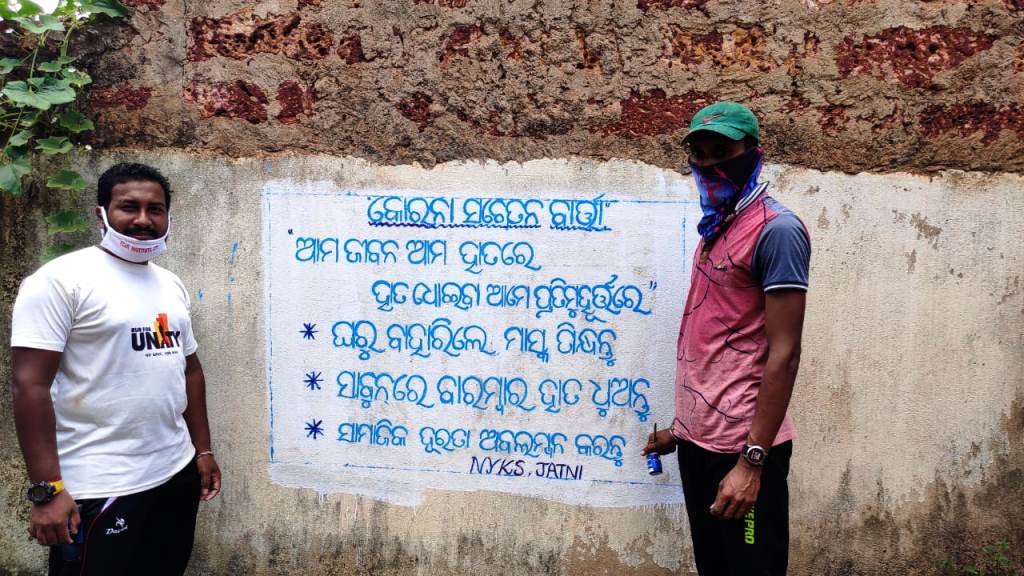 କୋରନା ସଚେତନ ବାର୍ତ୍ତା
"ଆମ ଜୀବନ ଆମ ହାତରେ
ହାତ ଧୋଇବା ଆମେ ପ୍ରତିମୁହୂର୍ତ୍ତରେ"
* ଘରୁ ବାହାରିଲେ ମାସ୍କ ପିନ୍ଧନ୍ତୁ
* ସାବୁନରେ ବାରମ୍ବାର ହାତ ଧୁଅନ୍ତୁ
* ସାମାଜିକ ଦୂରତା ଅବଲମ୍ବନ କରନ୍ତୁ
N.Y.K.S, JATNI
RUN FOR
UNITY